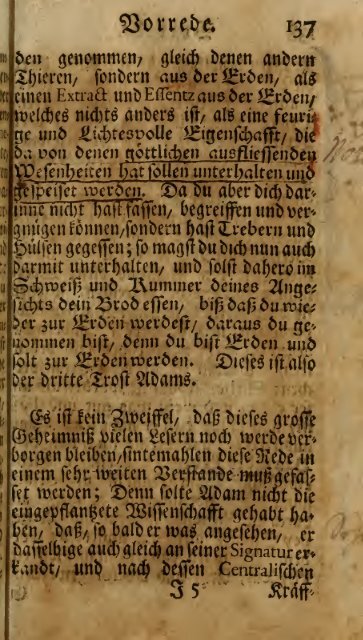 Vorrede. 137
den genommen, gleich denen andern
Thieren, sondern aus der Erden, als
einen Extract und Essentz aus der Erden,
welches nichts anders ist, als eine feuri
ge und Lichtesvolle Eigenschafft, die
da von denen göttlichen ausfliessenden
Wesenheiten hat sollen unterhalten und
gespeiset werden. Da du aber dich dar-
inne nicht hast fassen, begreiffen und ver-
gnügen können, sondern hast Trebern und
Hülsen gegessen; so magst du dich nun auch
darmit unterhalten, und solst dahero im
Schweiß und Kummer deines Ange-
sichts dein Brod essen, biß daß du wie-
der zur Erden werdest, daraus du ge-
nommen bist, denn du bist Erden und
solt zur Erden werden. Dieses ist also
der dritte Trost Adams.
Es ist kein Zweiffel, daß dieses grosse
Geheimniß vielen Lesern noch werde ver-
borgen bleiben, sintemahlen diese Rede in
einem sehr weiten Verstande muß gefas-
set werden; Denn solte Adam nicht die
eingepflantzte Wissenschafft gehabt ha-
ben, daß, so bald er was angesehen, er
dasselbige auch gleich an seiner Signatur er-
kandt, und nach dessen Centralischen
J 5 Kräff-